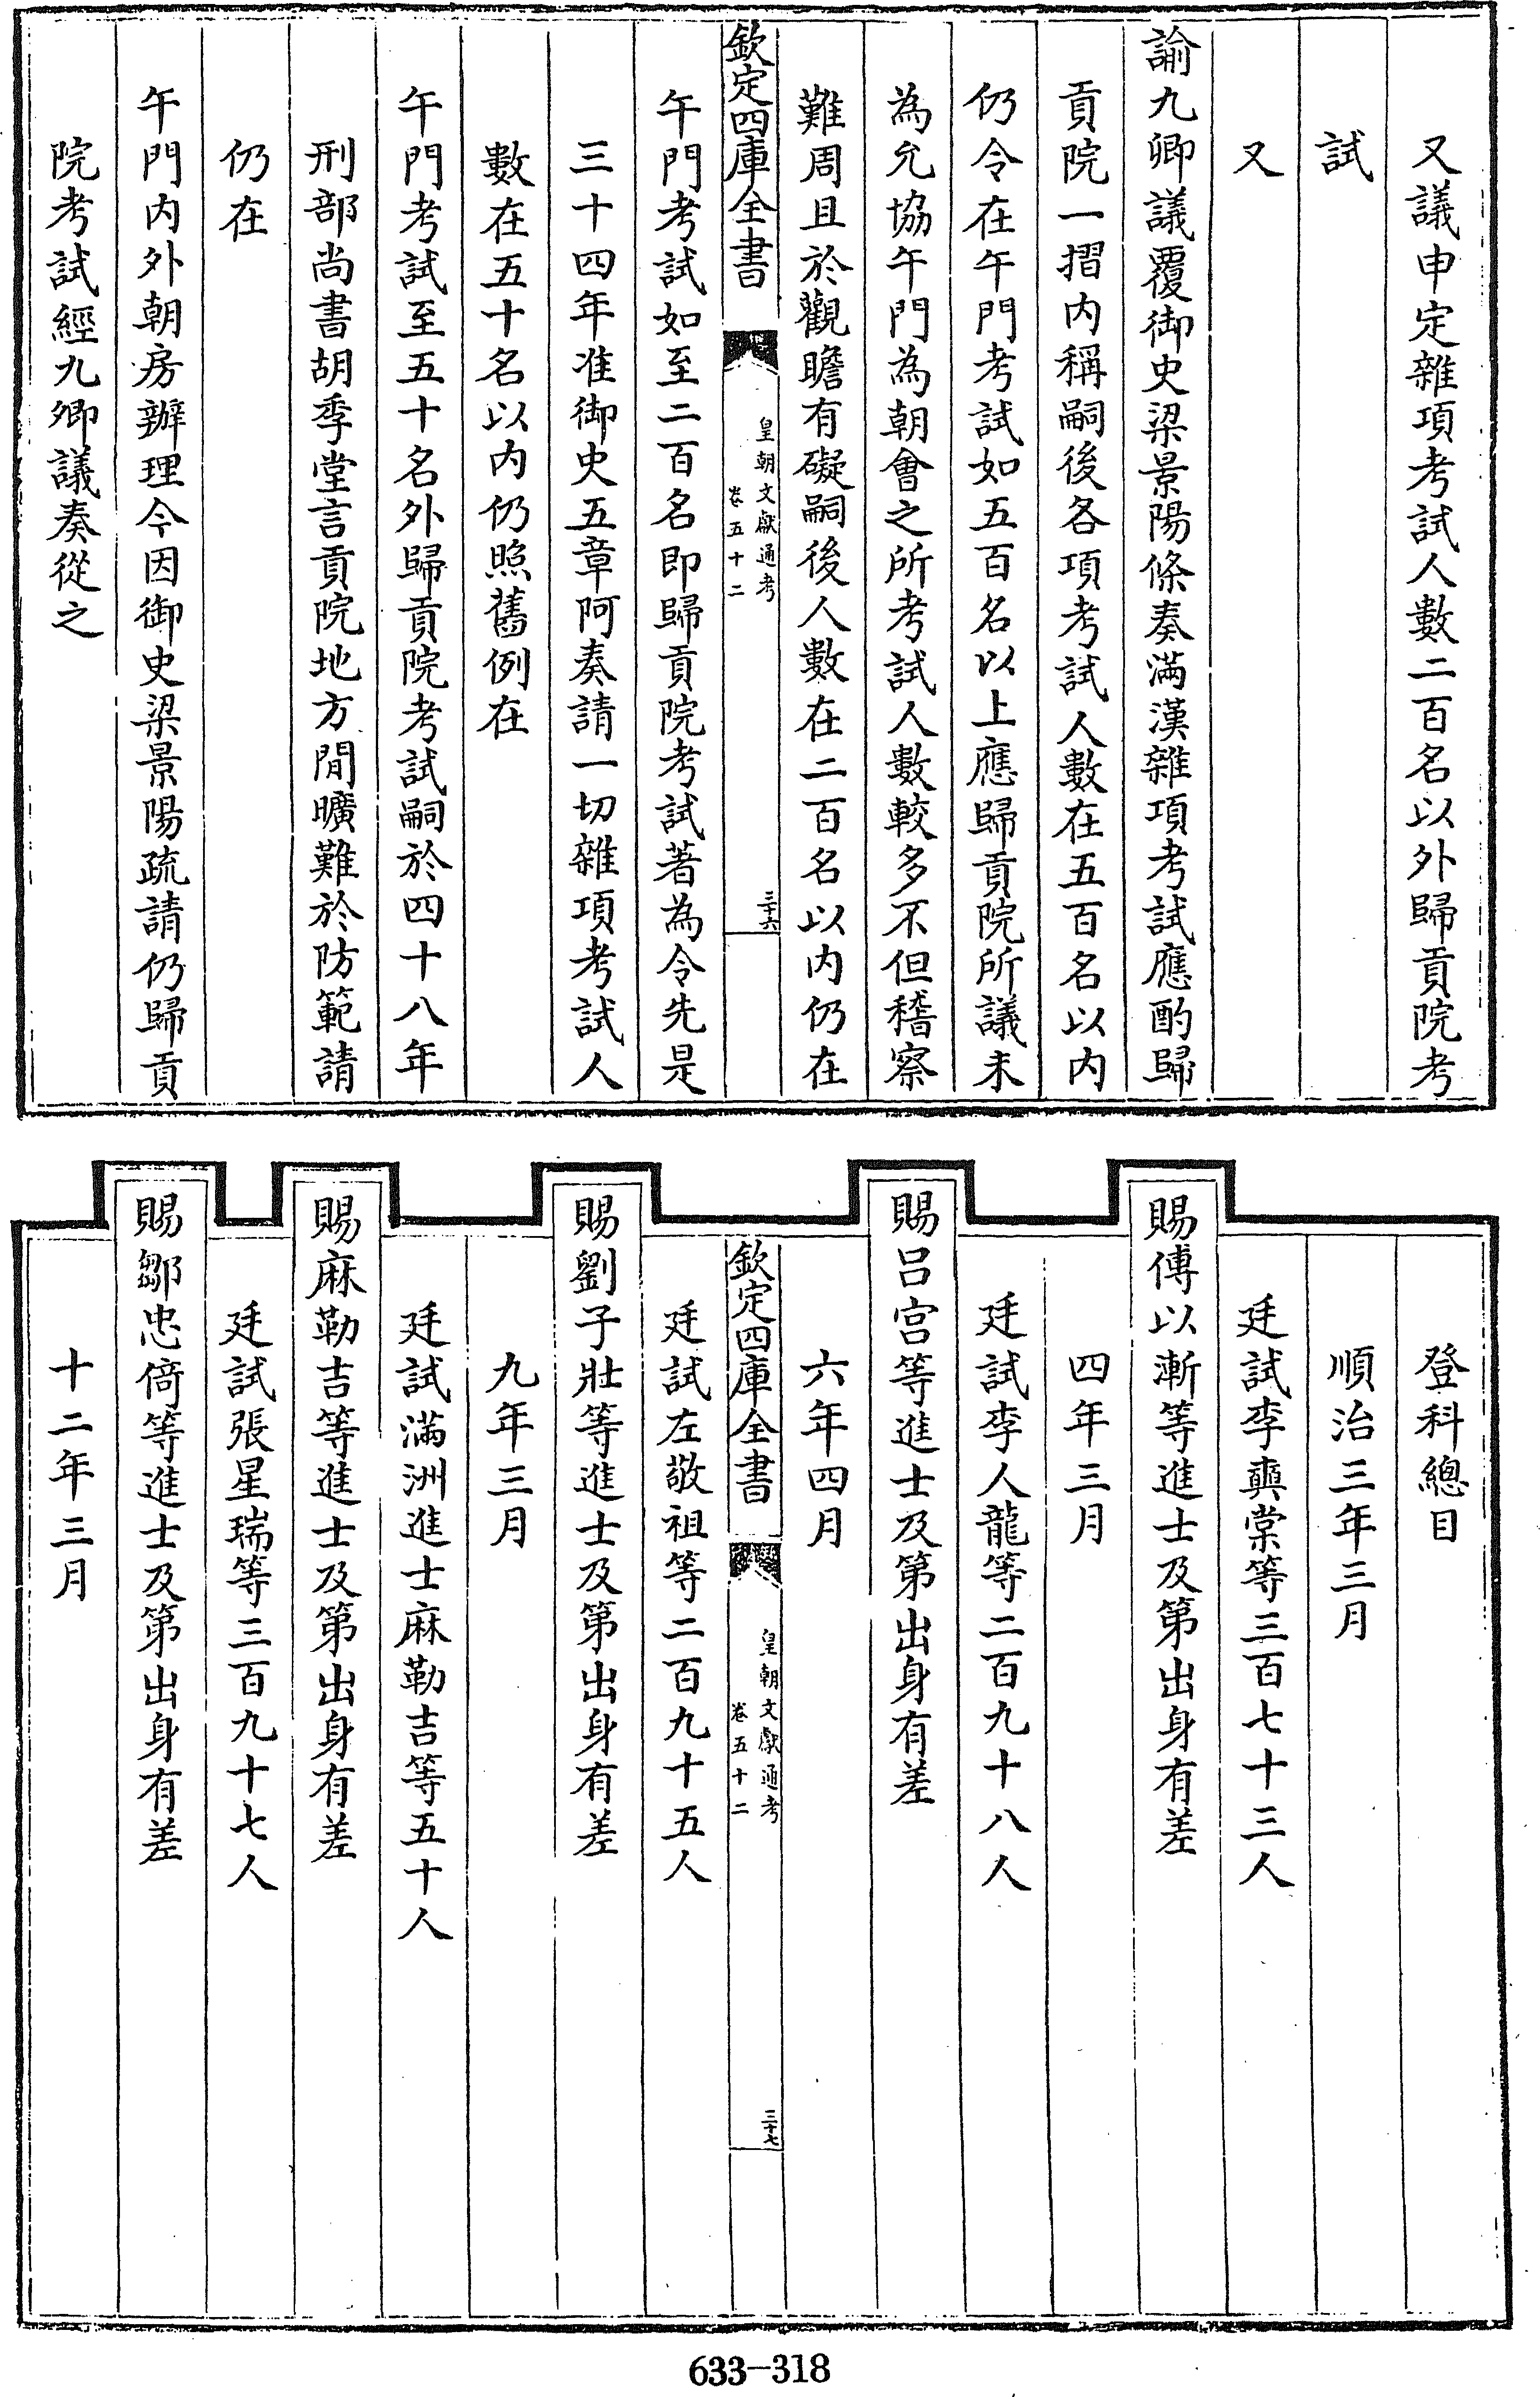 又議申定雜項考試人數二百名以外歸貢院考
試
又
諭九卿議覆御史梁景陽條奏滿漢雜項考試應酌歸
貢院一摺内稱嗣後各項考試人數在五百名以内
仍令在午門考試如五百名以上應歸貢院所議未
為允協午門為朝會之所考試人數較多不但稽察
難周且於觀瞻有礙嗣後人數在二百名以内仍在
欽定四庫全書
皇朝文獻通考
卷五十二
三十六
午門考試如至二百名即歸貢院考試著為令先是
三十四年准御史五章阿奏請一切雜項考試人
數在五十名以内仍照舊例在
午門考試至五十名外歸貢院考試嗣於四十八年
刑部尚書胡季堂言貢院地方閒曠難於防範請
仍在
午門内外朝房辦理今因御史梁景陽疏請仍歸貢
院考試經九卿議奏從之
登科總目
順治三年三月
廷試李奭棠等三百七十三人
賜傅以漸等進士及第出身有差
四年三月
廷試李人龍等二百九十八人
賜呂宮等進士及第出身有差
六年四月
欽定四庫全書
皇朝文獻通考
卷五十二
三十七
廷試左敬祖等二百九十五人
賜劉子壯等進士及第出身有差
九年三月
廷試滿洲進士麻勒吉等五十人
賜麻勒吉等進士及第出身有差
廷試張星瑞等三百九十七人
賜鄒忠倚等進士及第出身有差
十二年三月
633-318